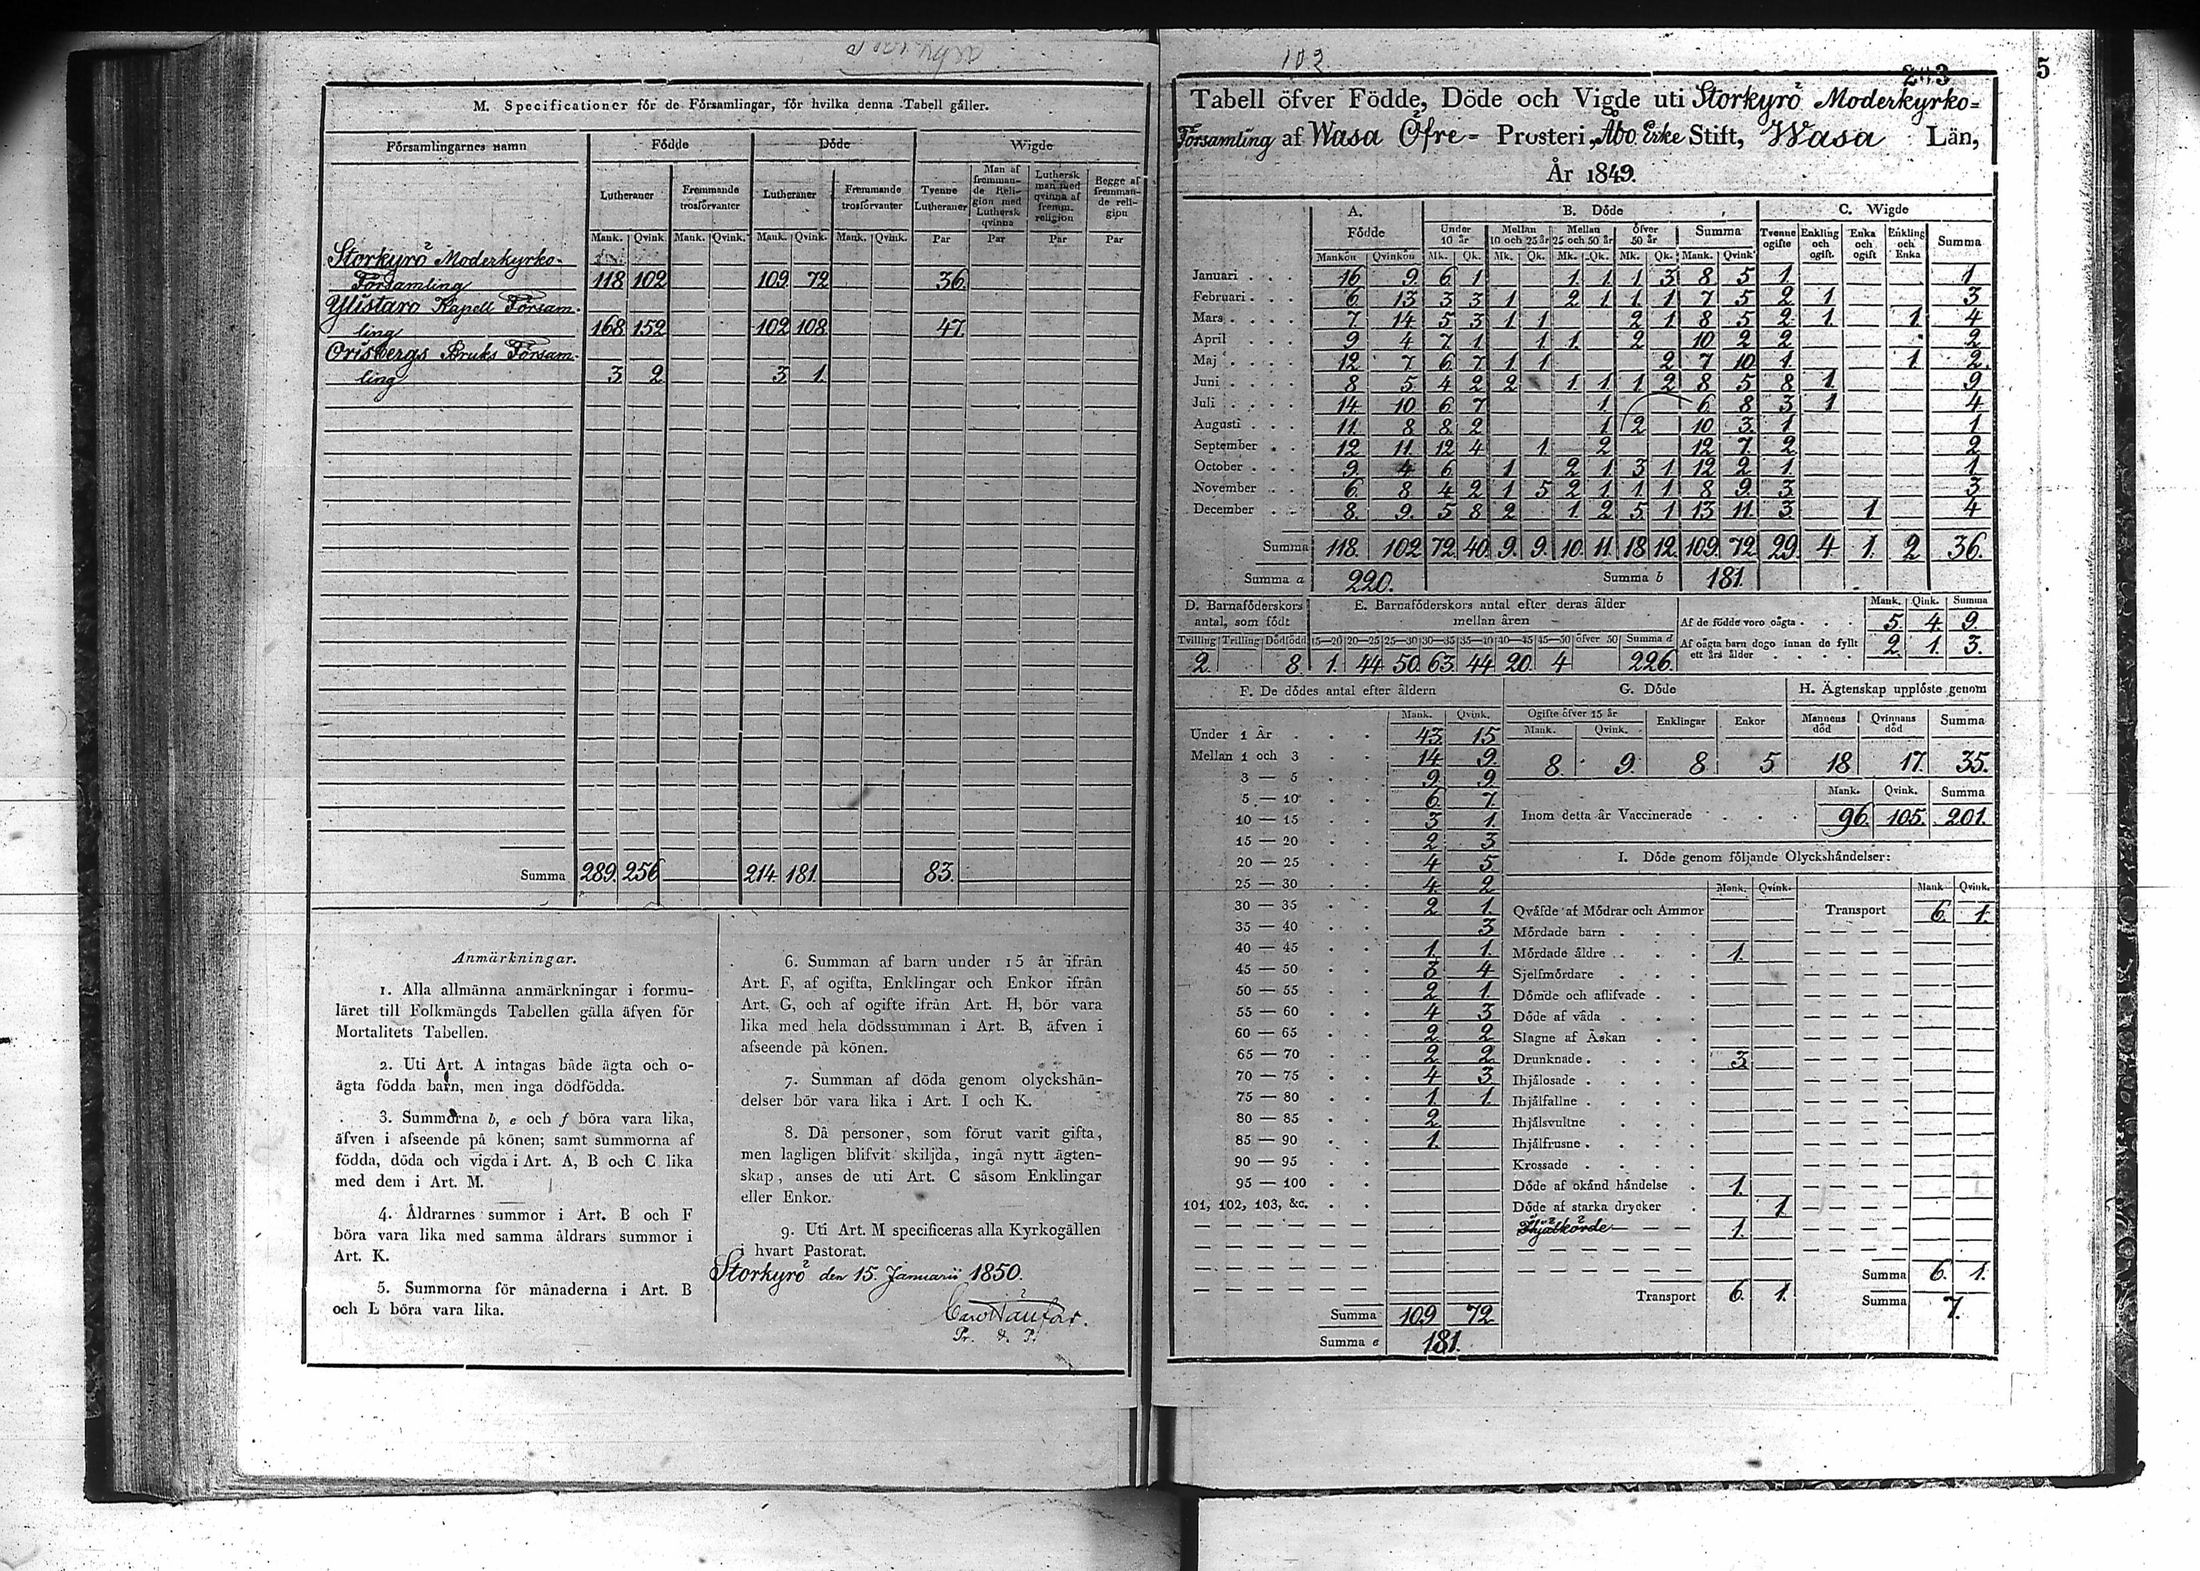 M. Specificationer för de Församlingar, för hvilka denna Tabell gäller.
Församlingarnes namn Födde Döde Wigde
Lutheraner Fremmande trosförvanter Lutheraner Fremmande trosförvanter Tvenne Lutheraner Man af fremmande Religion med Luthersk qvinna Luthersk man med qvinna af fremm. religion Begge af fremmande religion
Mank. Qvink. Mank. Qvink. Mank. Qvink. Mank. Qvink. Par Par Par Par
Storkyrö Moderkyrko-
Församling 118 102 109 72 36.
Ylistaro Kapell Försam-
ling 168 152 102 108 47.
Orisbergs Bruks Försam-
ling 3 2 3 1.
Summa 289. 256 214 181. 83.
Anmärkningar.
1. Alla allmänna anmärkningar i formu-
läret till Folkmängds Tabellen gälla äfven för
Mortalitets Tabellen.
2. Uti Art. A intagas både ägta och o-
ägta födda barn, men inga dödfödda.
3. Summorna b, e och f böra vara lika,
äfven i afseende på könen; samt summorna af
födda, döda och vigda i Art. A, B och C lika
med dem i Art. M.
4. Åldrarnes summor i Art. B och F
böra vara lika med samma åldrars summor i
Art. K.
5. Summorna för månaderna i Art. B
och L böra vara lika.
6. Summan af barn under 15 år ifrån
Art. F, af ogifta, Enklingar och Enkor ifrån
Art. G, och af ogifte ifrån Art. H, bör vara
lika med hela dödssumman i Art. B, äfven i
afseende på könen.
7. Summan af döda genom olyckshän-
delser bör vara lika i Art. I och K.
8. Då personer, som förut varit gifta,
men lagligen blifvit skiljda, ingå nytt ägten-
skap, anses de uti Art. C såsom Enklingar
eller Enkor.
9. Uti Art. M specificeras alla Kyrkogällen
i hvart Pastorat.
Storkyrö den 15. Januarii 1850.
Pr. & P.
103
5
Tabell öfver Födde, Döde och Vigde uti Storkyrö Moderkyrko-
Församling af Wasa Öfre- Prosteri, Åbo Erke Stift, Wasa Län,
År 1849.
A. Födde B. Döde C. Wigde
Under 10 år Mellan 10 och 25 år Mellan 25 och 50 år öfver 50 år Summa Tvenne ogifte Enkling och ogift. Enka och ogift Enkling och Enka Summa
Mankön Qvinkön Mk. Qk. Mk. Qk. Mk. Qk. Mk. Qk. Mank. Qvink.
Januari 16 9 6 1 1 1 1 3 8 5 1 1
Februari 6 13 3 3 1 2 1 1 1 7 5 2 1 3
Mars 7 14 5 3 1 1 2 1 8 5 2 1 1 4
April 9 4 7 1 1 1 2 10 2 2 2
Maj 12 7 6 7 1 1 2 7 10 1 1 2
Juni 8 5 4 2 2 1 1 1 2 8 5 8 1 9
Juli 14 10 6 7 1 6 8 3 1 4
Augusti 11 8 8 2 1 2 10 3 1 1
September 12 11 12 4 1 2 12 7 2 2
October 9 4 6 1 2 1 3 1 12 2 1 1
November 6 8 4 2 1 5 2 1 1 1 8 9 3 3
December 8 9 5 8 2 1 2 5 1 13 11 3 1 4
Summa 118. 102 72 40. 9. 9. 10. 11. 18 12. 109. 72 29. 4 1. 2 36.
Summa a 220. Summa b 181.
D. Barnaföderskors antal, som födt
Tvilling Trilling Dödfödd
2. 8
E. Barnaföderskors antal efter deras ålder mellan åren
15—20 20—25 25—30 30—35 35—40 40—45 45—50 öfver 50 Summa d
1. 44 50. 63. 44 20 4 226
Mank. Qink. Summa
Af de födde voro oägta 5. 4. 9.
Af oägta barn dogo innan de fyllt ett års ålder 2. 1. 3.
F. De dödes antal efter åldern
Mank. Qvink.
Under 1 År 43 15
Mellan 1 och 3 14 9
3 — 5 9 9
5 — 10 6 7
10 — 15 3 1.
15 — 20 2 3
20 — 25 4 5
25 — 30 4 2
30 — 35 2 1.
35 — 40 3
40 — 45 1. 1.
45 — 50 3 4
50 — 55 2 1.
55 — 60 4 3
60 — 65 2 2
65 — 70 2 2
70 — 75 4 3
75 — 80 1. 1.
80 — 85 2
85 — 90 1.
90 — 95
95 — 100
101, 102, 103, &c.
Summa 109 72
Summa e 181.
G. Döde
Ogifte öfver 15 år Enklingar Enkor
Mank. Qvink.
8 9. 8 5
H. Ägtenskap upplöste genom
Mannens död Qvinnans död Summa
18 17. 35.
Mank. Qvink. Summa
Inom detta år Vaccinerade 96. 105. 201.
I. Döde genom följande Olyckshändelser:
Mank. Qvink. Mank Qvink.
Qväfde af Mödrar och Ammor
Mördade barn
Mördade äldre 1.
Sjelfmördare
Dömde och aflifvade
Döde af våda
Slagne af Åskan
Drunknade 3
Ihjälosade
Ihjälfallne
Ihjälsvultne
Ihjälfrusne
Krossade
Döde af okänd händelse 1.
Döde af starka drycker 1
Ihjälkörde 1.
Transport 6. 1.
Transport 6. 1.
Summa 6. 1.
Summa 7.